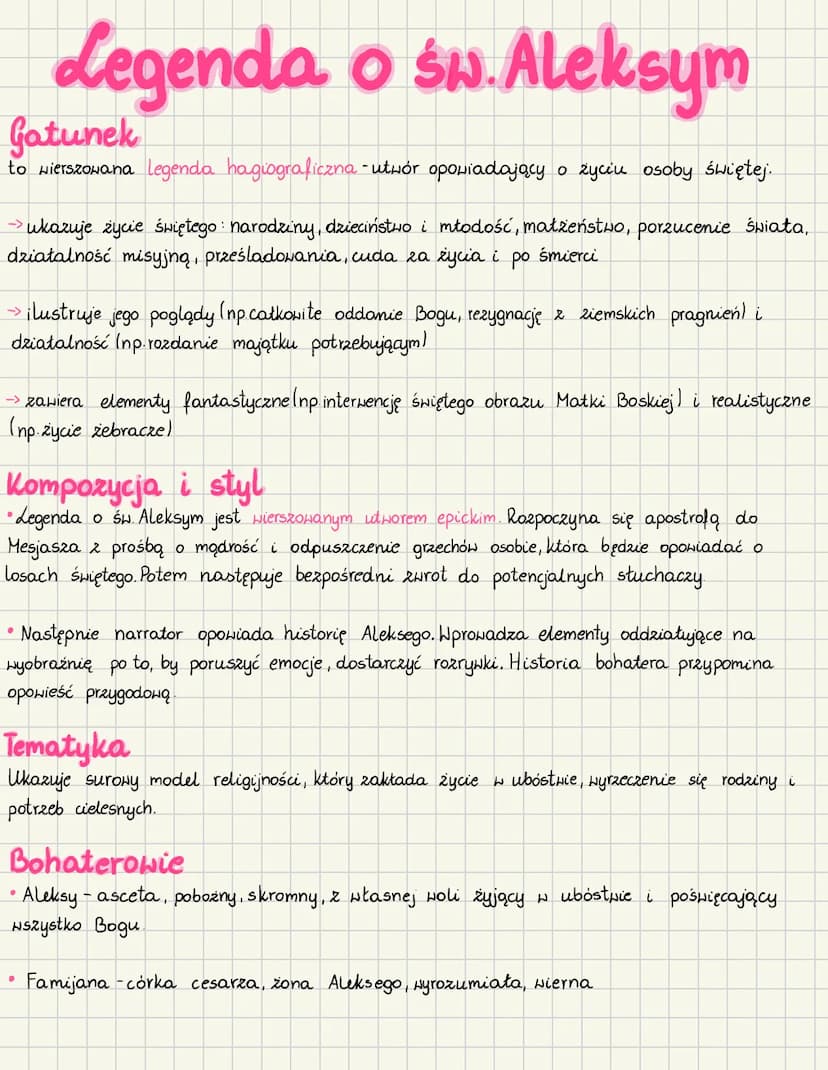 Legenda o św. Aleksym
Gatunek
to wierszowana legenda hagiograficzna - utwór opowiadający o życiu osoby świętej.
→ ukazuje życie świętego: narodziny, dzieciństwo i młodość, małżeństwo, porzucenie świata,
działalność misyjną, prześladowania, cuda za życia i po śmierci
→ ilustruje jego poglądy (np. całkowite oddanie Bogu, rezygnację z ziemskich pragnień) i
działalność (np. rozdanie majątku potrzebującym)
→ zawiera elementy fantastyczne (np. interwencję świętego obrazu Matki Boskiej) i realistyczne
(np. życie żebracze)
Kompozycja i styl
• Legenda o św. Aleksym jest wierszowanym utworem epickim. Rozpoczyna się apostrofą do
Mesjasza z prośbą o mądrość i odpuszczenie grzechów osobie, która będzie opowiadać o
losach świętego. Potem następuje bezpośredni zwrot do potencjalnych słuchaczy.
• Następnie narrator opowiada historię Aleksego. Wprowadza elementy oddziałujące na
wyobraźnię po to, by poruszyć emocje, dostarczyć rozrywki. Historia bohatera przypomina
opowieść przygodową.
Tematyka
Ukazuje surowy model religijności, który zakłada życie w ubóstwie, wyrzeczenie się rodziny i
potrzeb cielesnych.
Bohaterowie
• Aleksy - asceta, pobożny, skromny, z własnej woli żyjący w ubóstwie i poświęcający
wszystko Bogu.
• Famijana - córka cesarza, żona Aleksego, wyrozumiała, wierna